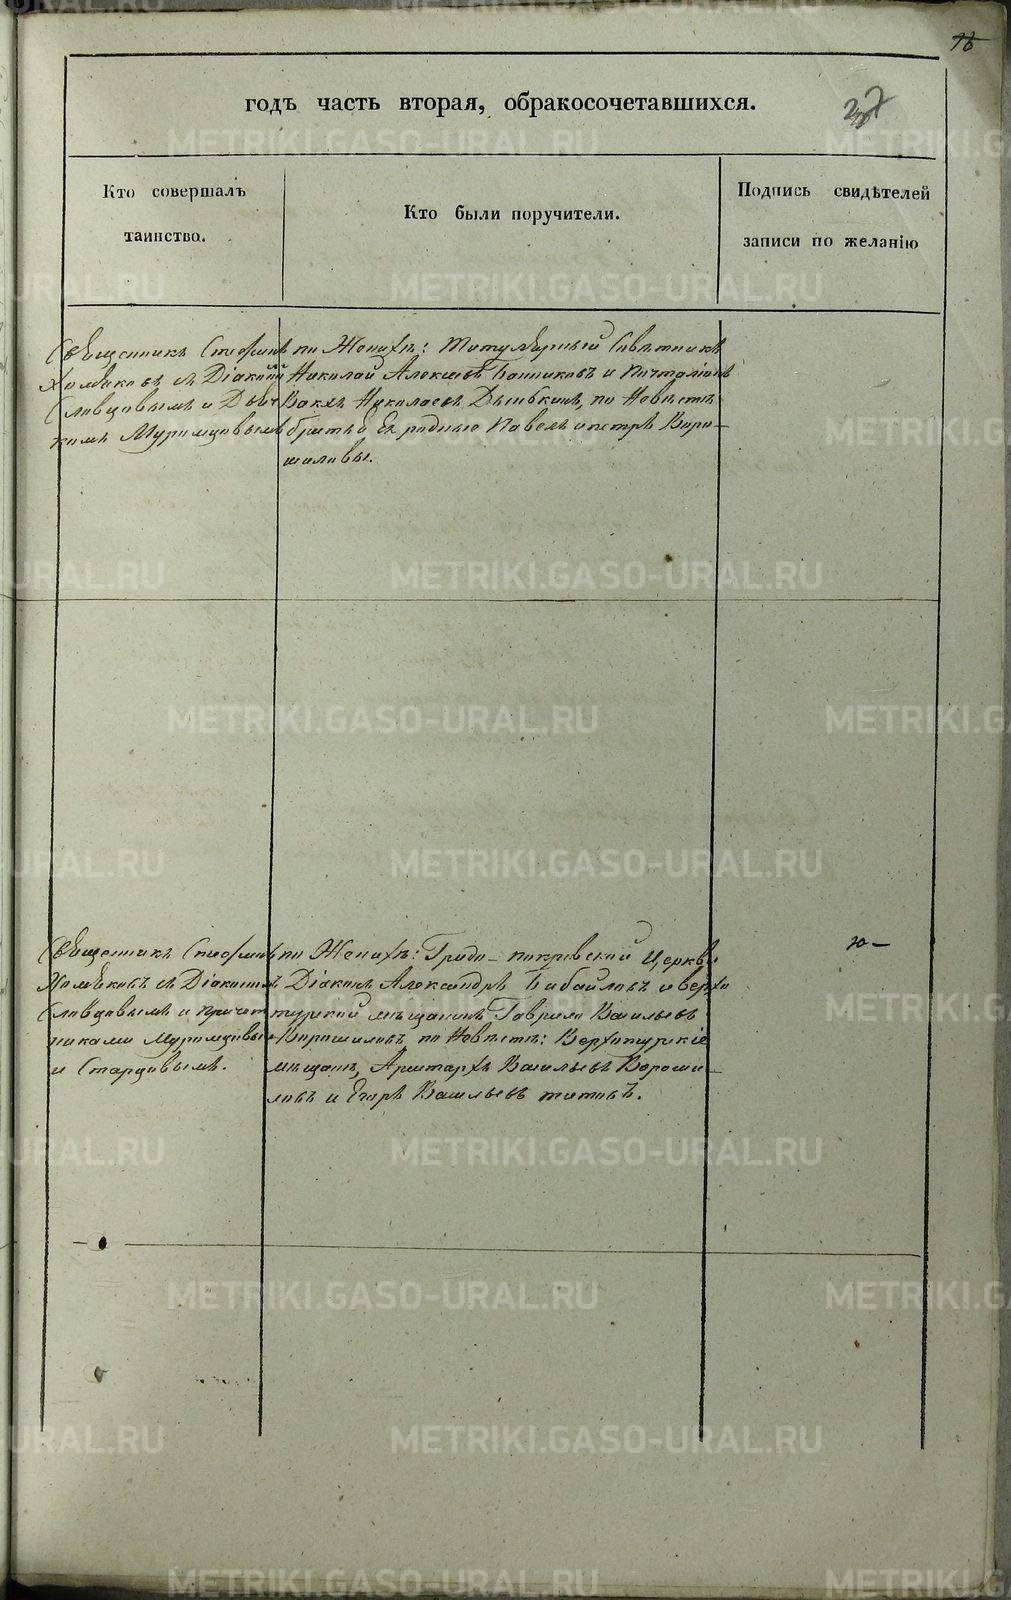 16
годъ часть вторая, обракосочетавшихся.
37
Кто совершалъ
таинство.
Кто были поручители.
Подпись свидѣтелей
записи по желанію
Священникъ Стефанъ
Хомяковъ съ Діакономъ
Словцовымъ и
Муромцовымъ
по Женихѣ: Титулярный Совѣтникъ
Николай Алексѣевъ Банниковъ и
Николаевъ по Невѣстѣ
братья Ея родные Павелъ и петръ Воро-
шиловы.
Священникъ Стефанъ
Хомяковъ съ Діакономъ
Словцовымъ и причет
никами Муромцовымъ
и Старцовымъ.
по Женихѣ: Градо-покровской Церкви
Діаконъ Александръ и верхо
турской мѣщанинъ Гаврило Васильевъ
Ворошиловъ по Невѣстѣ: Верхотурскіе
мѣщане, Аристархъ Васильевъ Вороши-
ловъ и Егоръ Васильевъ титовъ.
METRIKI.GASO-URAL.RU